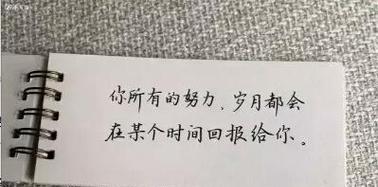 你所有的努力、岁月都会
在某个时间回报给你。